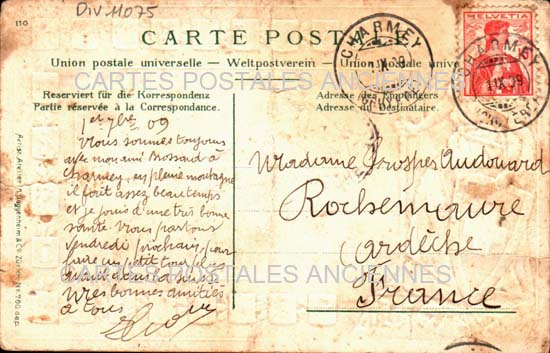 Div 11075
110
CARTE POSTALE
HELVETIA
CHARMEY
1.IX.09
CHARMEY
1.IX.09
Union postale universelle — Weltpostverein — Union postale unive
CARTES POSTALES ANCIENNES
Reserviert für die Korrespondenz
Partie réservée à la Correspondance.
Adresse des Empfängers
Adresse du Destinataire.
1er 7bre 09
Nous sommes toujours
avec mon ami Rossand à
Charmey, en pleine montagne
il fait assez beau temps
et je jouis d'une très bonne
santé. Nous partons
vendredi prochain, pour
faire un petit tour
avant
Très bonnes amitiés
à tous
Madame Prosper Audouard
Rochemaure
Ardèche
France
CARTES POSTALES ANCIENNES
Guggenheim & Co. Zürich No 760 dep.